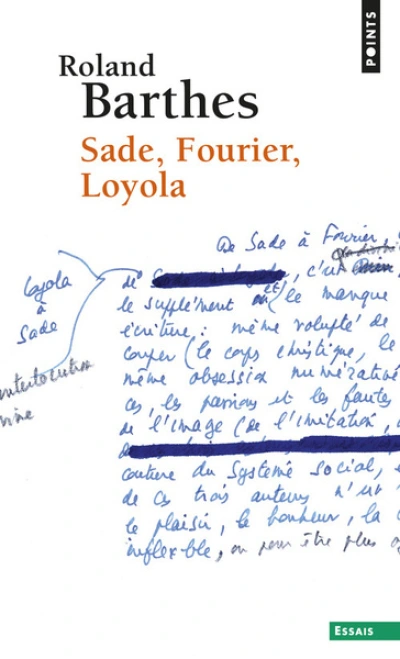 POINTS
Roland
Barthes
Sade, Fourier,
Loyola
De Sade à Fourier,
Loyola
à
Sade
de
, c'est
le supplément
et
le manque
écriture : même volupté de
couper (le corps christique, le
même obsession numérative
es, les passions et les fautes
de l'image (de l'imitation,
couture du système social,
de ces trois auteurs n'
le plaisir, le bonheur, la
inflexible, ou pour être plus
ESSAIS